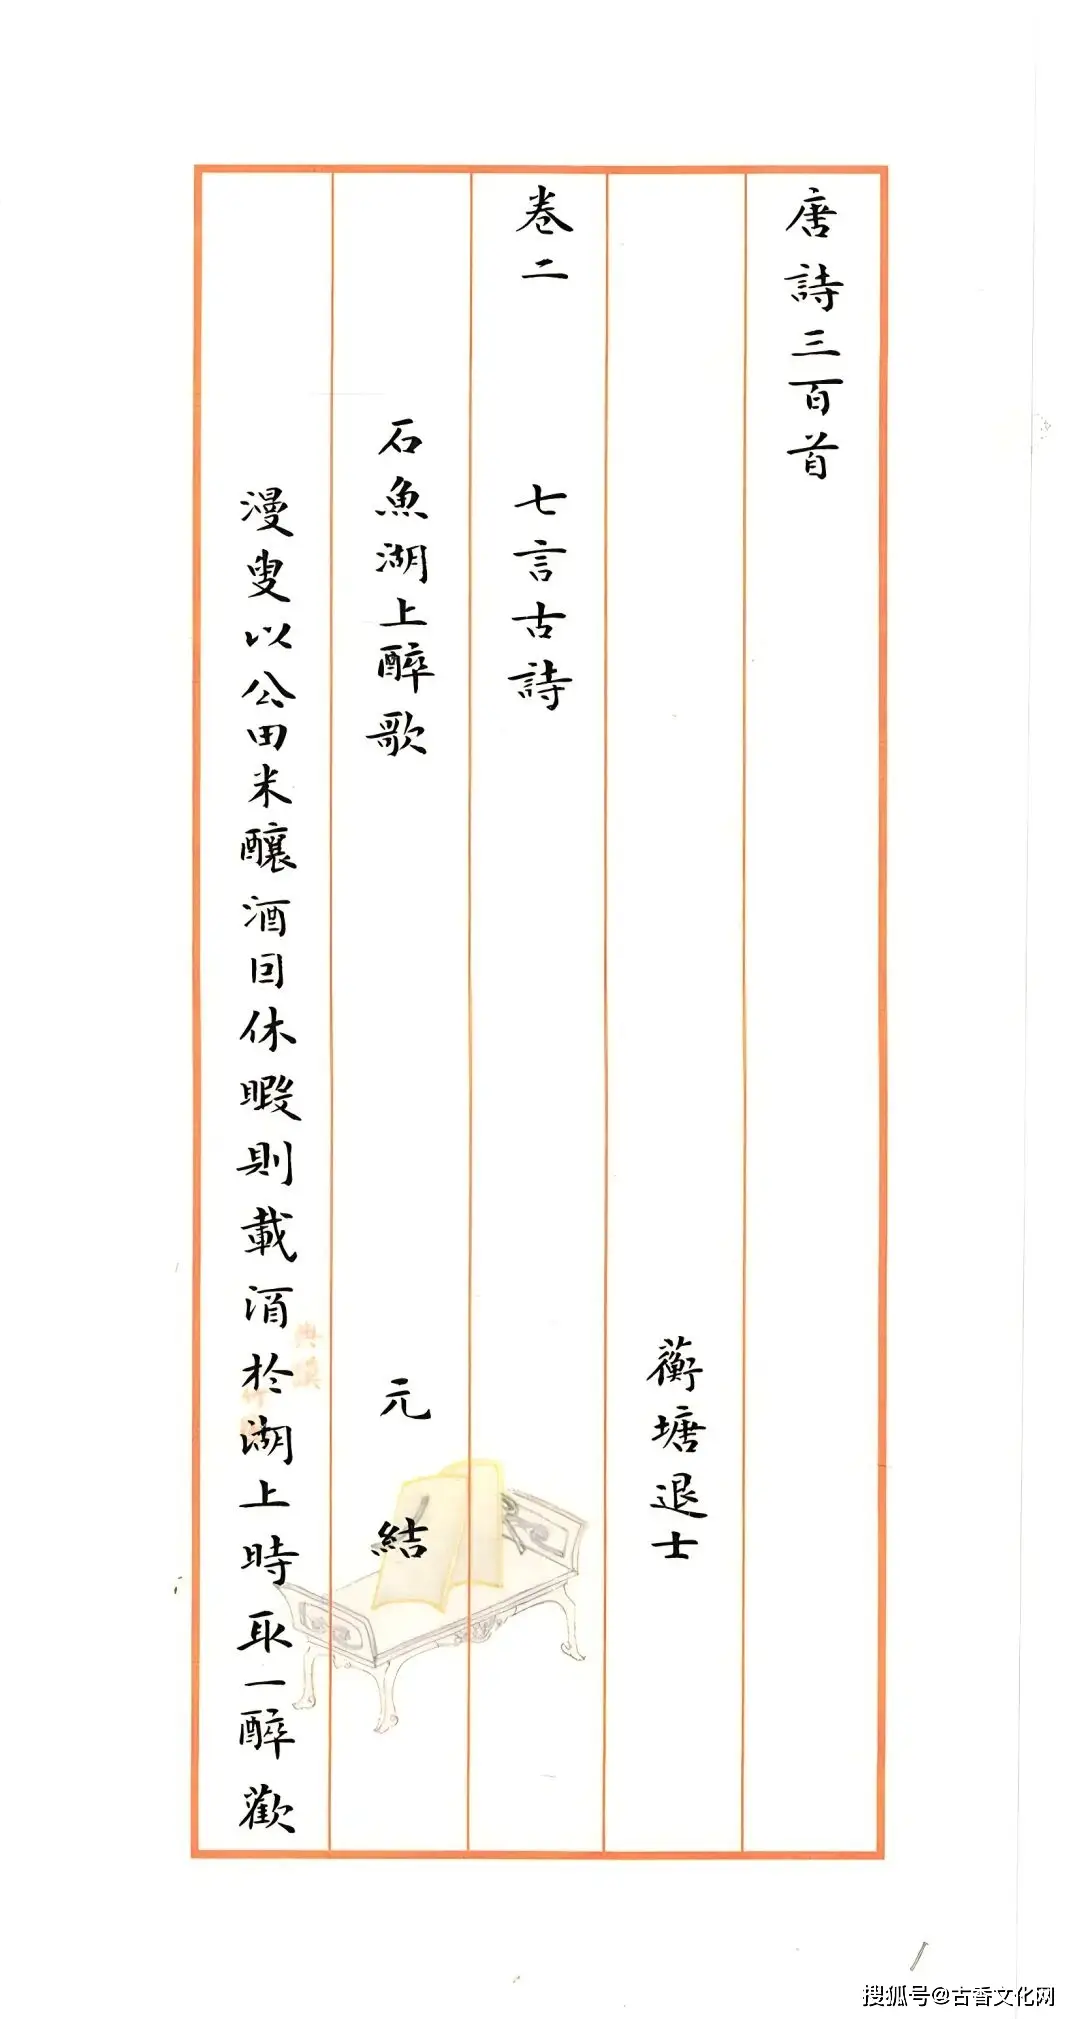 唐詩三百首
蘅塘退士
卷二 七言古詩
石魚湖上醉歌 元結
漫叟以公田米釀酒因休暇則載酒於湖上時取一醉歡
搜狐号@古香文化网